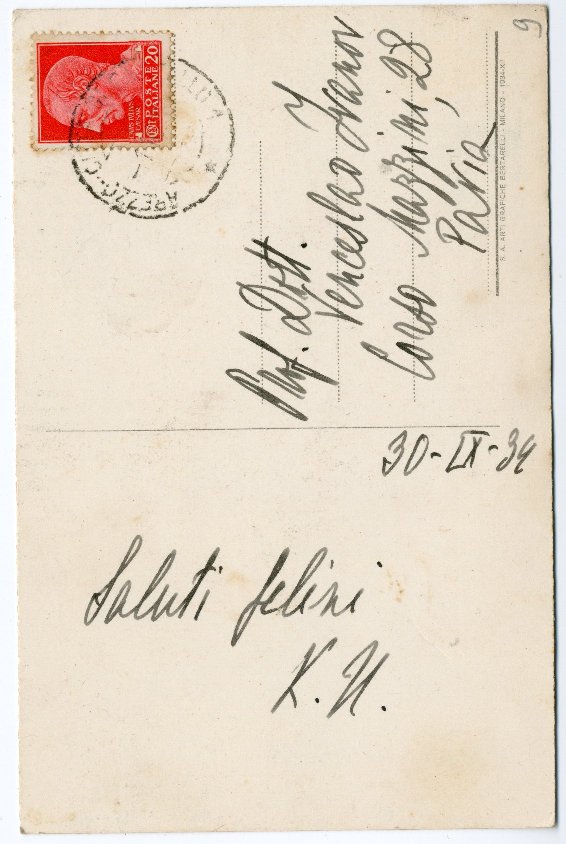 9
POSTE
ITALIANE 20
CENT
AREZZO
Prof. Dott.
Venceslao Ivanov
Corso Mazzini, 28
Pavia
S. A. ARTI GRAFICHE BERTARELLI MILANO - 1934-XII
30-IX-34
Saluti felini
K. H.